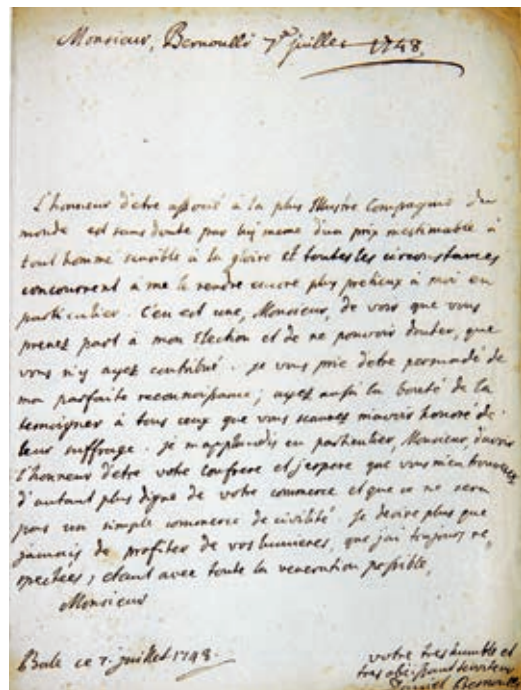 Monsieur, Bernoulli 7e juillet 1748.
L'honneur d'etre associé à la plus Illustre Compagnie du
monde est sans doute par luy meme d'un prix inestimable à
tout homme sensible à la gloire et toutes les circonstances
concourent à me le rendre encore plus pretieux à moi en
particulier. C'en est une, Monsieur, de voir que vous
prenez part à mon Election et de ne pouvoir douter, que
vous n'y ayez contribué. je vous prie d'etre persuadé de
ma parfaite reconnoissance; ayez aussi la bonté de la
temoigner à tous ceux que vous scaurez m'avoir honoré de
leur suffrage. je m'applaudis en particulier, Monsieur, d'avoir
l'honneur d'etre votre Confrere et j'espere que vous m'en trouverez
d'autant plus digne de votre commerce et que ce ne sera
pas un simple commerce de civilité. Je desire plus que
jamais de profiter de vos lumieres, que j'ai toujours re,
spectées, etant avec toute la veneration possible,
Monsieur
Bale ce 7. juillet 1748.
votre tres humble et
tres obeissant serviteur
Daniel Bernoulli